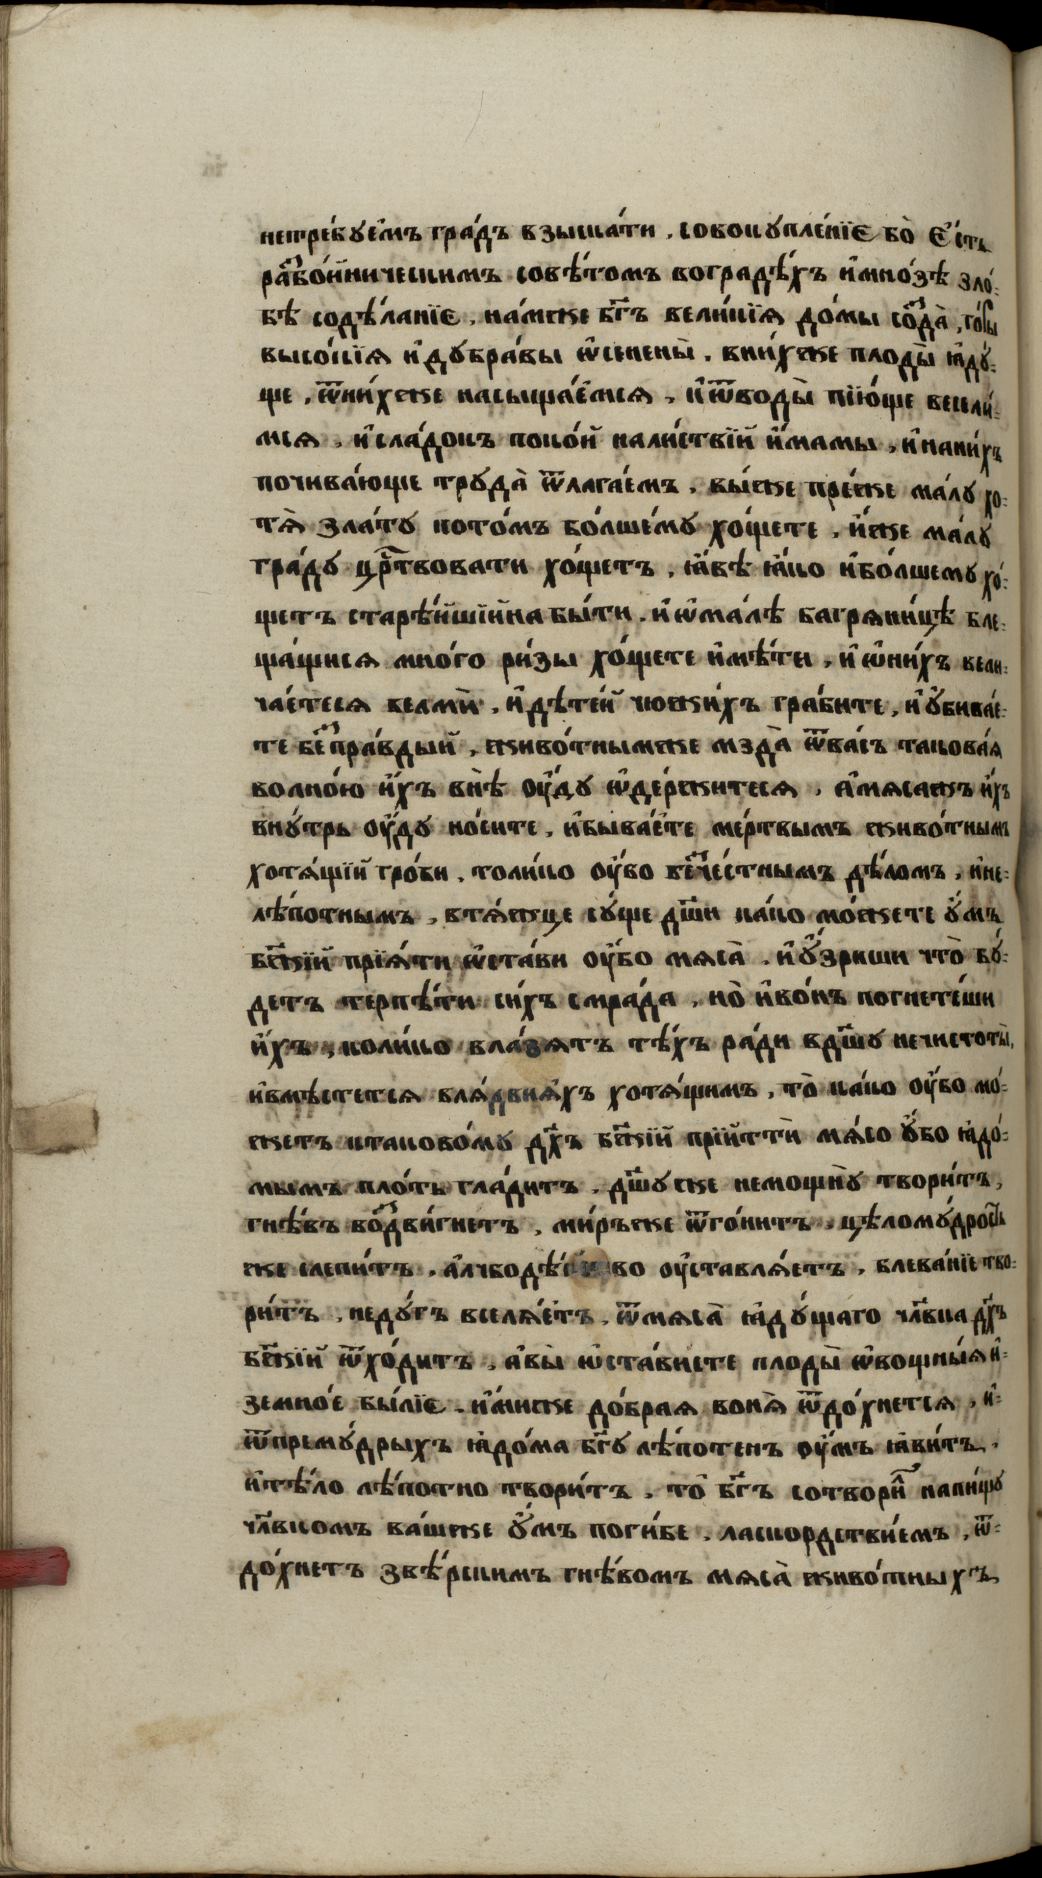 нетре́буемъ гра́дъ взыска́ти, совокупле́нїе бо̀ є҆́сть
ра̾збо́йническимъ совѣ́томъ воградѣ́хъ и҆мно́зѣ зло́-
бѣ содѣ́ланїе, на́мже бг҃ъ вели́кїя до́мы со̾зда̀, го́ры
высо́кїя и҆дубра́вы ѡ҆сѣнены̀. вни́хже плоды̀ ꙗ҆ду́-
ще, ѿни́хже насыща́емся, и҆ѿводы̀ пїю́ще весели́-
мся, и҆сла́докъ поко́й нали́ствїй и҆́мамы, и҆нани́хъ
почива́юще труда̀ ѿлага́емъ. вы́же пре́же ма́лу хо-
тя̀ зла́ту пото́мъ бо́лшему хо́щете, и҆́же ма́лу
гра́ду црⷭ҇твовати хо́щетъ, ꙗ҆́вѣ ꙗ҆́ко и҆бо́лшему хо́-
щетъ старѣ́йшїйна бы́ти. и҆ѡ҆ма́лѣ багряни́цѣ бле-
ща́щися мно́го ри́зы хо́щете и҆мѣ́ти, и҆ѡ҆ни́хъ вели-
ча́етеся велмѝ, и҆дѣте́й чюжи́хъ гра́бите, и҆ꙋ҆бива́е-
те бе̾спра́вдый, живо́тнымже мзда̀ ѿва́съ такова́я
волно́ю и҆́хъ внѣ̀ ѹ҆́ду ѡ҆де́ржитеся, а҆мяса́жъ и҆́хъ
вну́трь ѹ҆́ду но́сите, и҆быва́ете ме́ртвымъ живо́тнымъ
хотя́щїй гро́би. толи́ко ѹ҆́бо бе̾сче́стнымъ дѣ́ломъ, и҆не-
лѣ́потнымъ, втя́жце су́ще дш҃и ка́ко мо́жете ѹ҆́мъ
бж҃їй прїя́ти ѡ҆ста́ви ѹ҆́бо мяса̀. и҆ѹ҆́зриши что̀ бу́-
детъ терпѣ́ти си́хъ смра́да, но̀ и҆во́нъ погнете́ши
и҆́хъ, коли́ко вла́зятъ тѣ́хъ ра́ди вдш҃у нечистоты̀,
и҆вмѣ́стется вля́двия́хъ хотя́щимъ, то̀ ка́ко ѹ҆́бо мо́-
жетъ ктаково́му дх҃ъ бж҃їй прїйтѝ мя́со ѹ҆́бо ꙗ҆до́-
мымъ пло́ть гла́дитъ, дш҃у же немощну̀ твори́тъ,
гнѣ́въ во̾здви́гнетъ, ми́ръже ѿго́нитъ, цѣлому́дрость
же слепи́тъ, а҆лчбодѣ́йство ѹ҆ставля́етъ, блева́нїе тво-
ри́тъ, неду́гъ вселя́етъ, ѿмяса̀ ꙗ҆ду́щаго чл҃вка дх҃ъ
бж҃їй ѿхо́дитъ, а҆вы̀ ѡ҆ста́висте плоды̀ ѡ҆вощны́я и҆-
земно́е бы́лїе. и҆́миже до́брая воня̀ ѿдо́хнется, и҆-
ѿпрему́дрыхъ ꙗ҆до́ма бг҃у лѣ́потенъ ѹ҆́мъ ꙗ҆ви́тъ.
и҆тѣ́ло лѣ́потно твори́тъ. то̀ бг҃ъ сотвори́лъ напи́щу
чл҃вкомъ ва́шеже ѹ҆́мъ поги́бе. ласкордстви́емъ, ѿ-
до́хнетъ звѣ́рскимъ гнѣ́вомъ мяса̀ живо́тныхъ